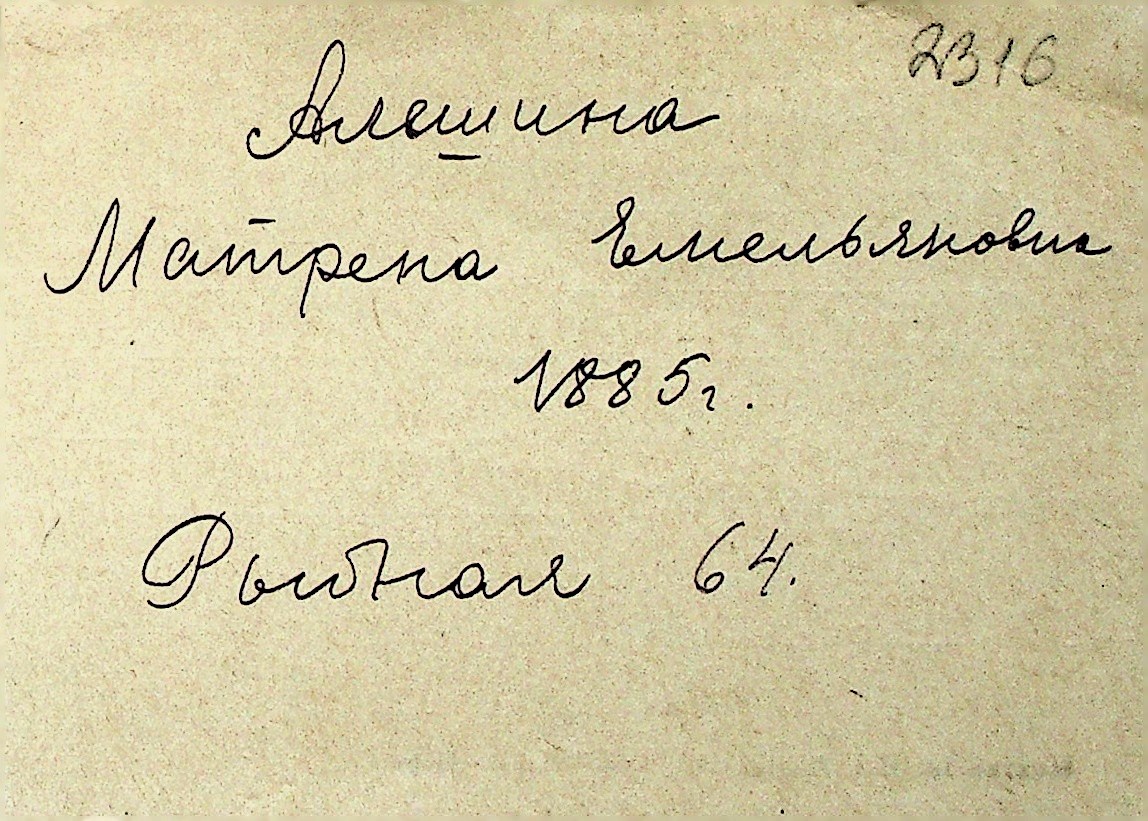 2316
Алешина
Матрена Емельяновна
1885г.
Рыбная 64.